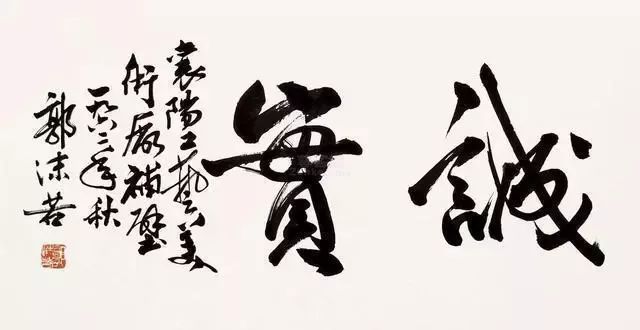 誠實
襄陽工藝美
術廠補壁
一九六年秋
郭沫若